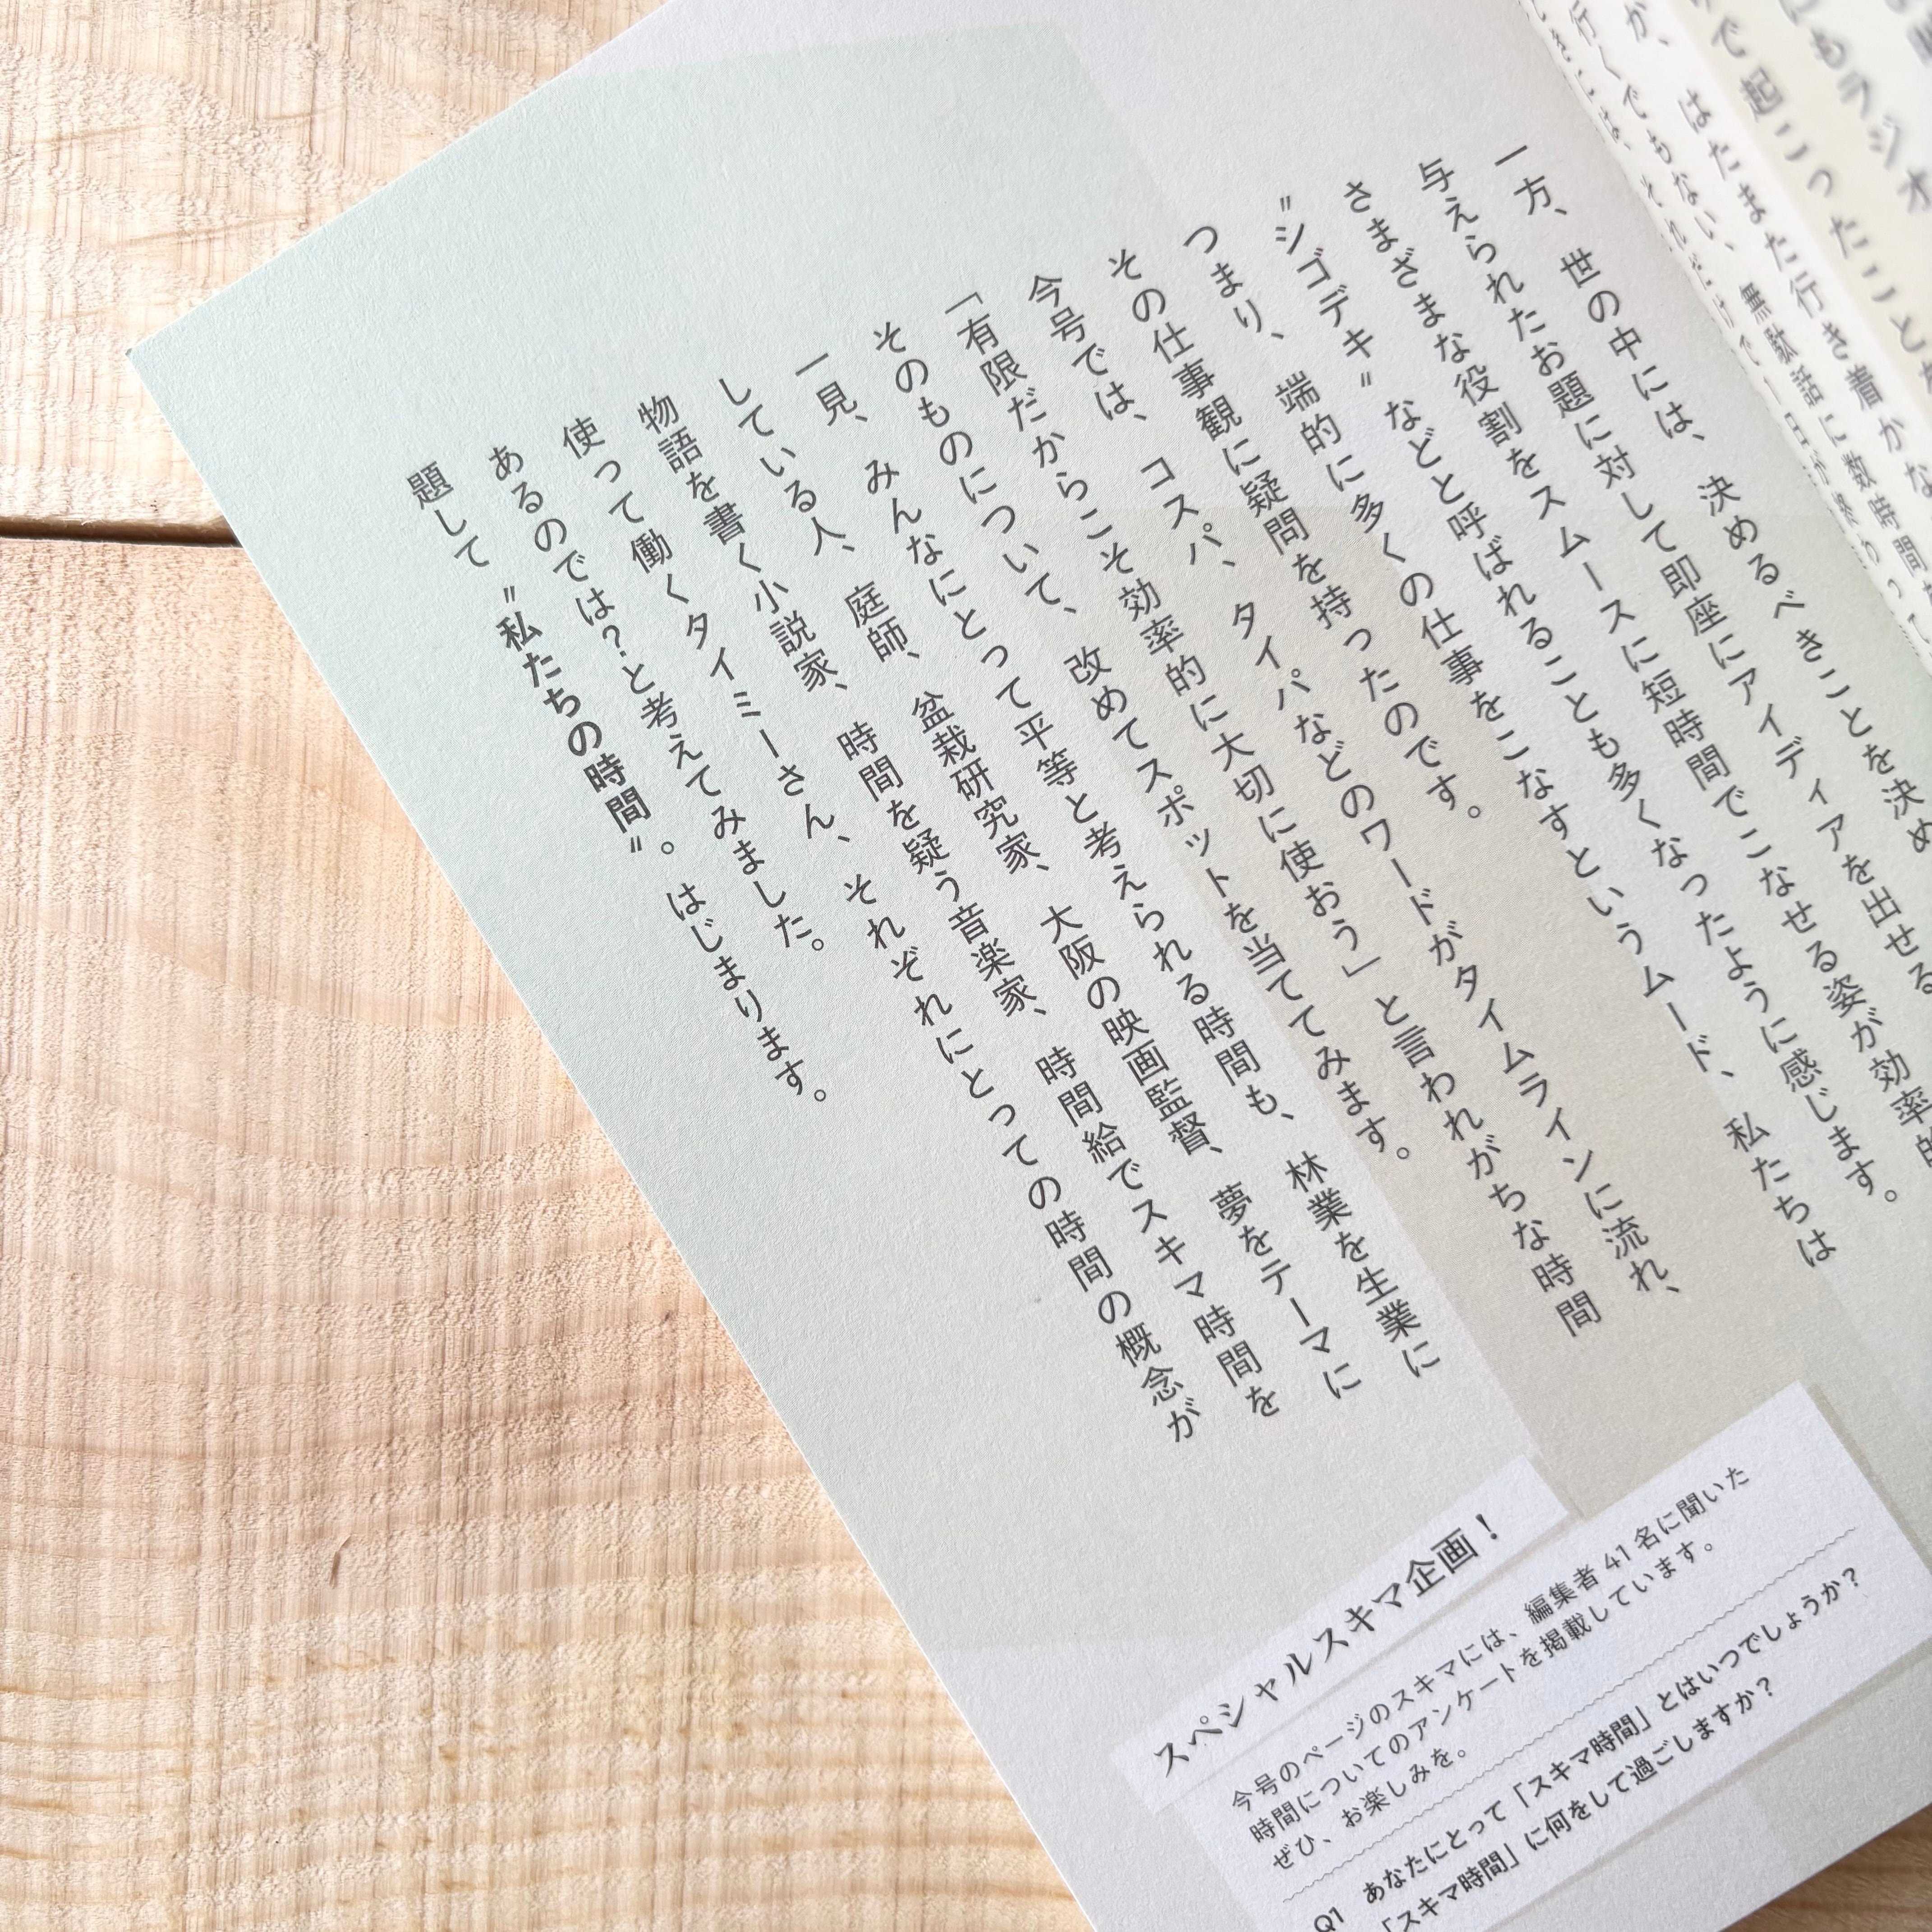 一方、世の中には、決めるべきことを決め
与えられたお題に対して即座にアイディアを出せる
さまざまな役割をスムースに短時間でこなせる姿が効率的
〝シゴデキ〟などと呼ばれることも多くなったように感じます。
つまり、端的に多くの仕事をこなすというムード、私たちは
その仕事観に疑問を持ったのです。
今号では、コスパ、タイパなどのワードがタイムラインに流れ、
「有限だからこそ効率的に大切に使おう」と言われがちな時間
そのものについて、改めてスポットを当ててみます。
一見、みんなにとって平等と考えられる時間も、林業を生業に
している人、庭師、盆栽研究家、大阪の映画監督、夢をテーマに
物語を書く小説家、時間を疑う音楽家、時間給でスキマ時間を
使って働くタイミーさん、それぞれにとっての時間の概念が
あるのでは？と考えてみました。
題して〝私たちの時間〟。はじまります。
スペシャルスキマ企画！
今号のページのスキマには、編集者 41 名に聞いた
時間についてのアンケートを掲載しています。
ぜひ、お楽しみを。
Q1 あなたにとって「スキマ時間」とはいつでしょうか？
「スキマ時間」に何をして過ごしますか？